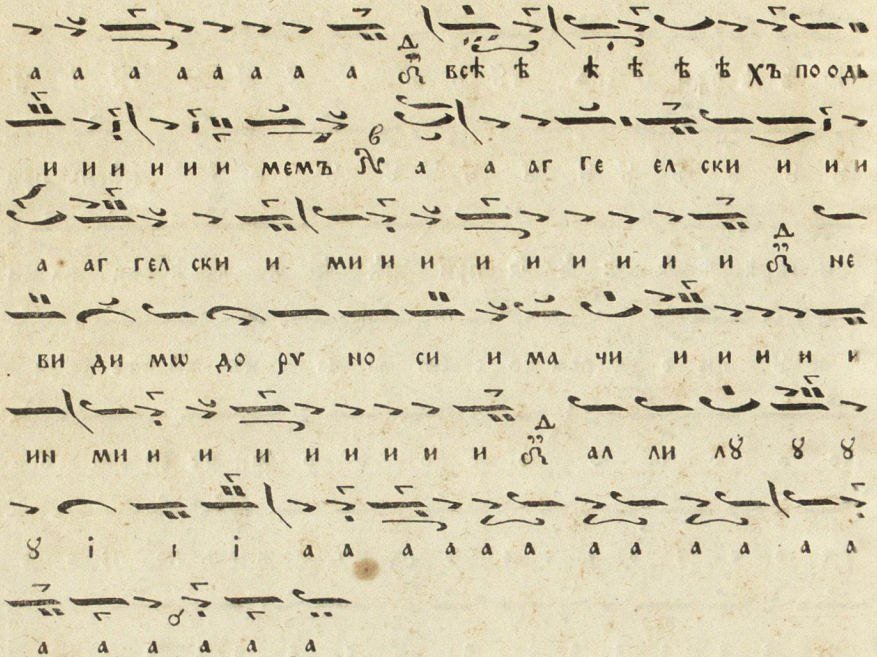 а а а а а а а а всѣ ѣ ѣ ѣ ѣ ѣ хъ по одь
и и и и и и мемъ а а аг ге ел ски и и и
а аг гел ски и ми и и и и и и и и не
ви ди мѡ до рѵ но си и ма чи и и и и
ин ми и и и и и и и и ал ли лꙋ ꙋ ꙋ
ꙋ і і і а а а а а а а а а а а а
а а а а а а